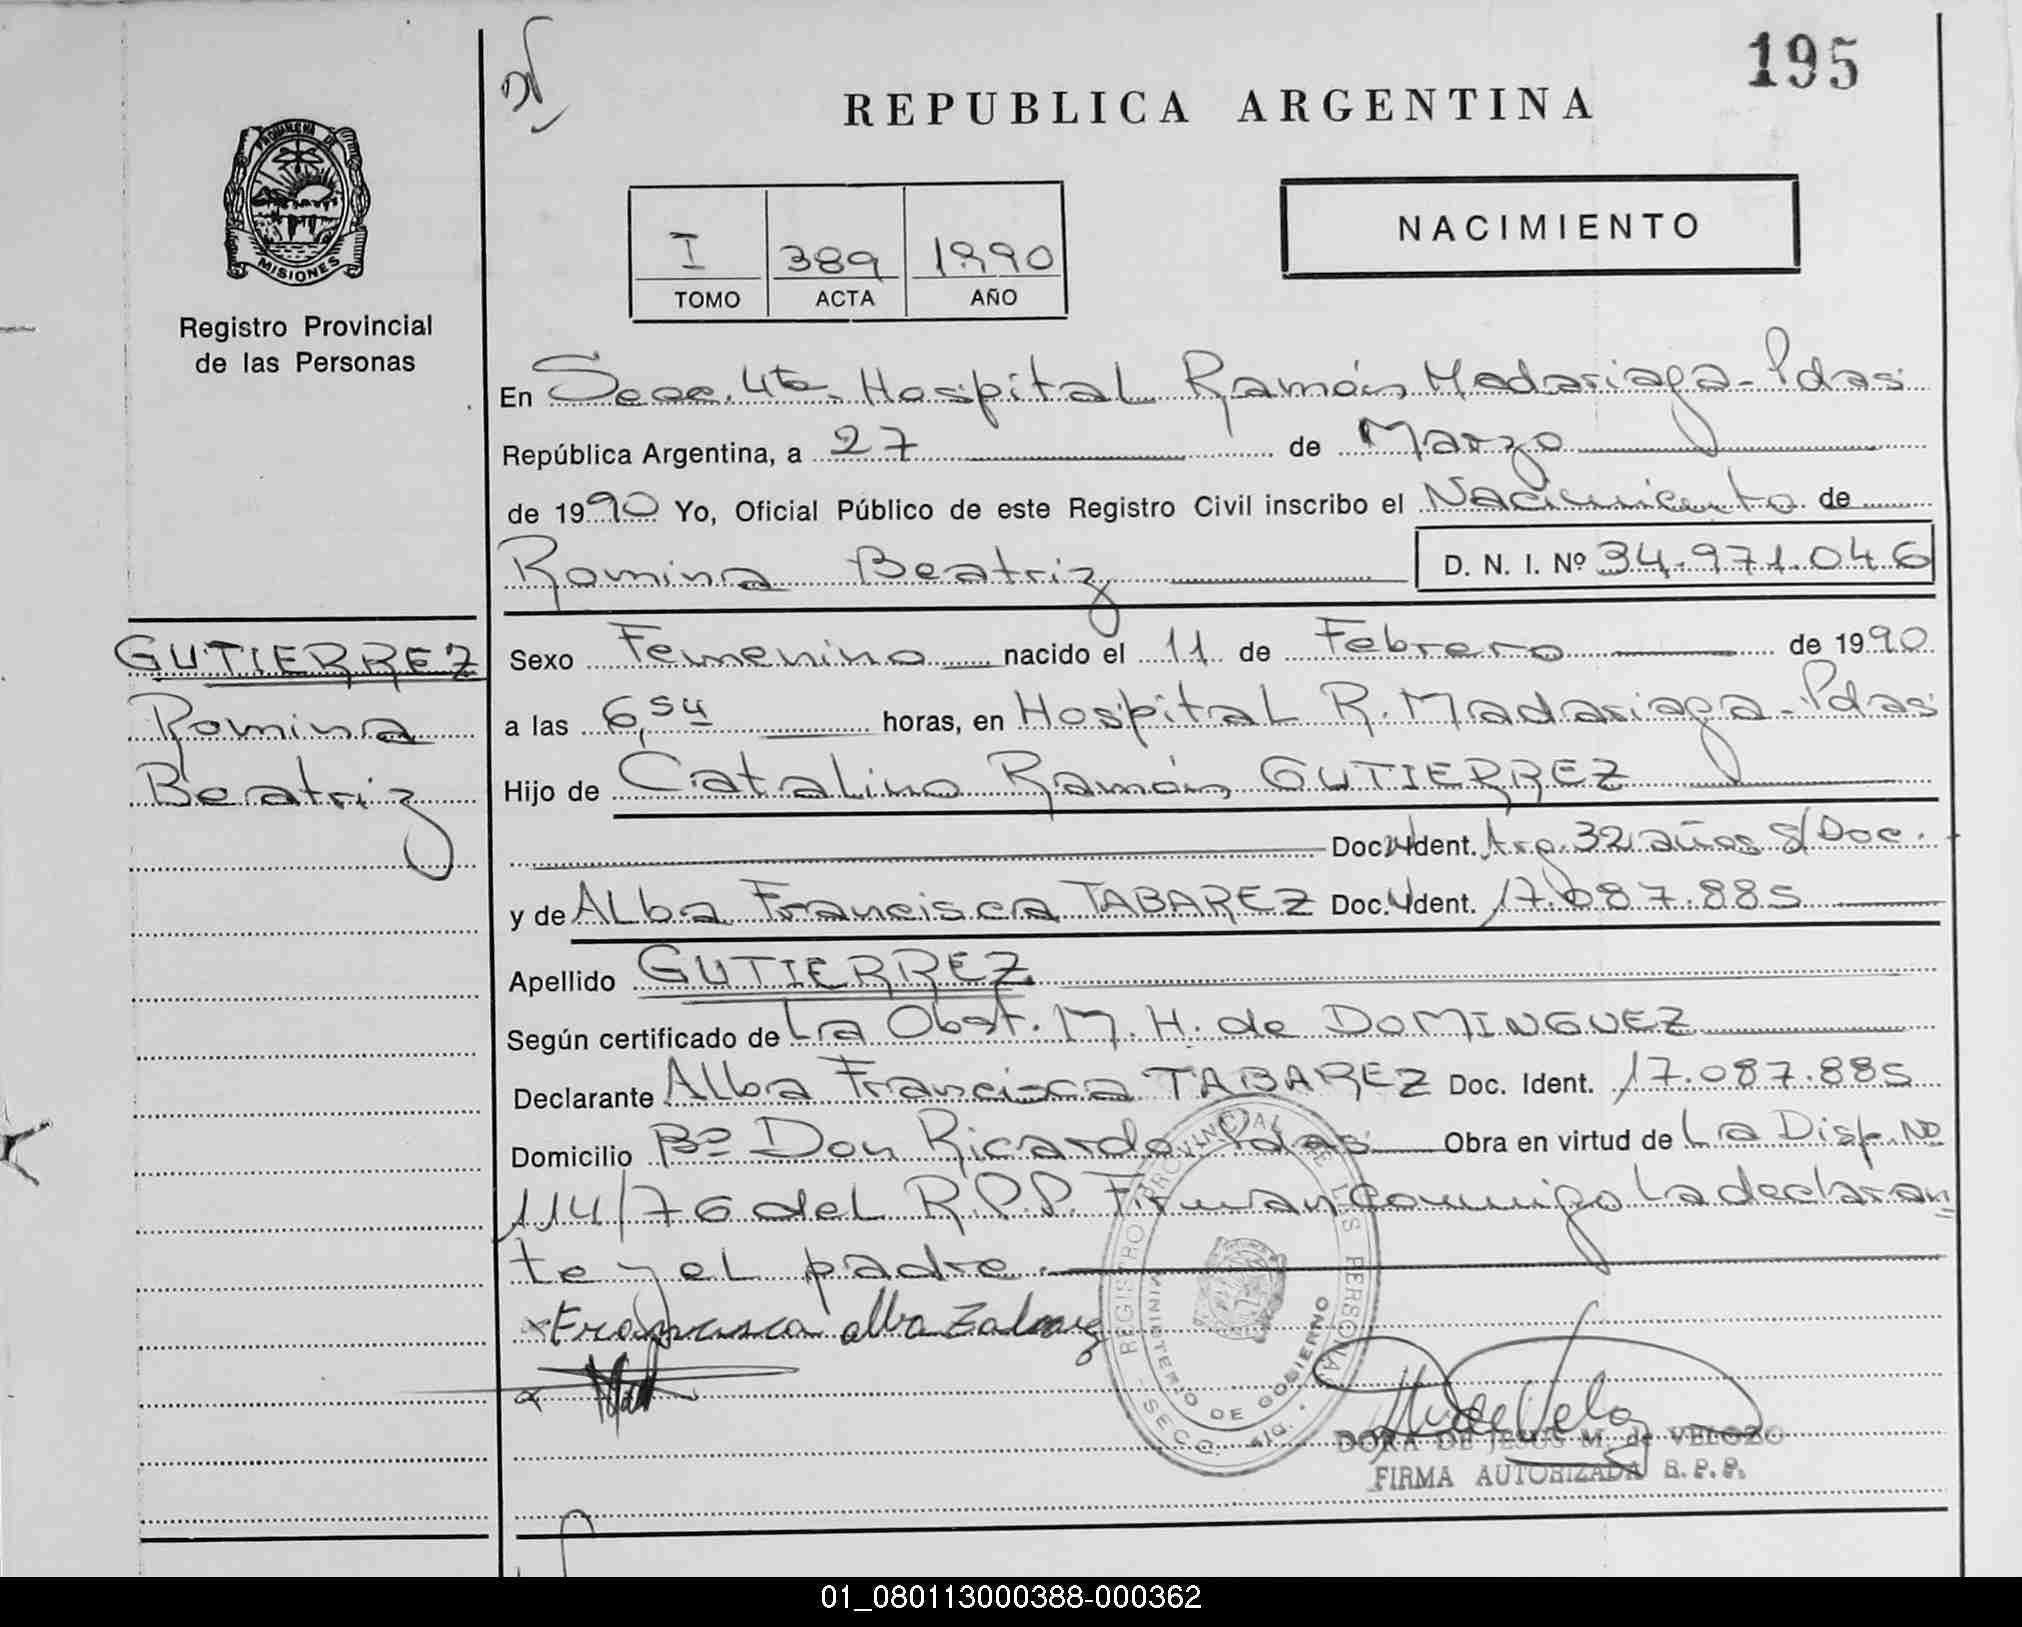 195
REPUBLICA ARGENTINA
PROVINCIA DE
MISIONES
Registro Provincial
de las Personas
NACIMIENTO
I 389 1990
TOMO ACTA AÑO
En Secc. 4ta. Hospital Ramón Madariaga - Pdas
República Argentina, a 27 de Marzo
de 1990 Yo, Oficial Público de este Registro Civil inscribo el Nacimiento de
Romina Beatriz D. N. I. Nº 34.971.046
GUTIERREZ
Romina
Beatriz
Sexo Femenino nacido el 11 de Febrero de 1990
a las 6,54 horas, en Hospital R. Madariaga - Pdas
Hijo de Catalino Ramón GUTIERREZ
Doc. Ident. Arg. 32 años s/Doc.
y de Alba Francisca TABAREZ Doc. Ident. 17.087.885
Apellido GUTIERREZ
Según certificado de La Obst. M. H. de DOMINGUEZ
Declarante Alba Francisca TABAREZ Doc. Ident. 17.087.885
Domicilio Bº Don Ricardo Pdas Obra en virtud de La Disp. Nº
114/76 del R.P.P. Firman conmigo la declaran
te y el padre.
REGISTRO PROVINCIAL DE LAS PERSONAS
MINISTERIO DE GOBIERNO
SECC. 4ta.
Francisca alba
DORA DE JESUS M. de VELOZO
FIRMA AUTORIZADA R.P.P.
01_080113000388-000362